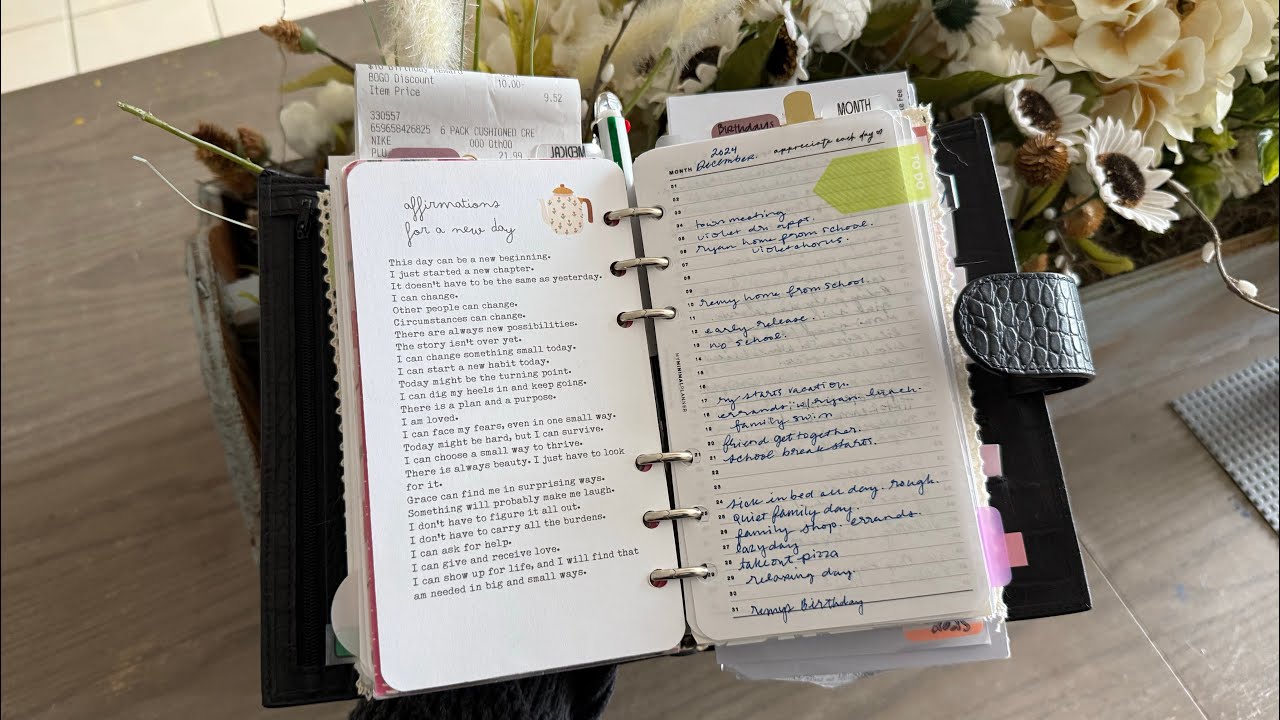 $10 Birthday Reward
BOGO Discount 10.00-
Item Price 9.52
330557
659658426825 6 PACK CUSHIONED CRE
NIKE 000 0th00
PLU 21.99
MEDICAL
affirmations
for a new day
This day can be a new beginning.
I just started a new chapter.
It doesn't have to be the same as yesterday.
I can change.
Other people can change.
Circumstances can change.
There are always new possibilities.
The story isn't over yet.
I can change something small today.
I can start a new habit today.
Today might be the turning point.
I can dig my heels in and keep going.
There is a plan and a purpose.
I am loved.
I can face my fears, even in one small way.
Today might be hard, but I can survive.
I can choose a small way to thrive.
There is always beauty. I just have to look
for it.
Grace can find me in surprising ways.
Something will probably make me laugh.
I don't have to figure it all out.
I don't have to carry all the burdens.
I can ask for help.
I can give and receive love.
I can show up for life, and I will find that
am needed in big and small ways.
Birthdays
MONTH
ke Fee
2024
MONTH December. appreciate each day
TO DO
01
02
03
04 town meeting
05 violet dr appt.
06 ryan home from school.
07 violet chorus.
08
09
10 remy home from school.
11
12 early release.
13 no school.
14
15
16
17 ry starts vacation.
18 errands w/ryan. lunch.
19 family swim
20 friend get together.
21 school break starts.
22
23
24 sick in bed all day. rough.
25 Quiet family day.
26 family shop. errands.
27 lazy day
28 takeout pizza
29 relaxing day.
30
31 remys Birthday
MINIMALPLANNER
2025